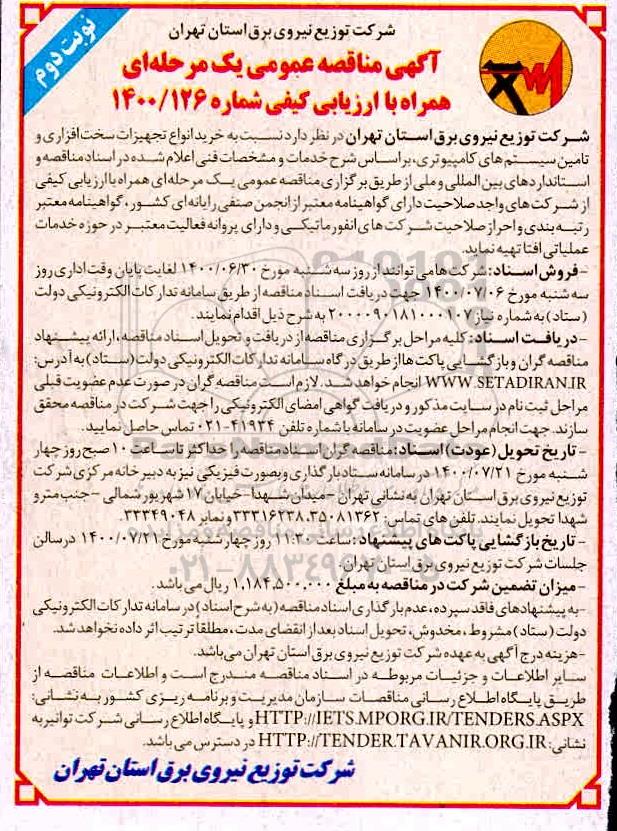 نوبت دوم
شرکت توزیع نیروی برق استان تهران
آگهی مناقصه عمومی یک مرحله‌ای
همراه با ارزیابی کیفی شماره ۱۴۰۰/۱۲۶
شرکت توزیع نیروی برق استان تهران در نظر دارد نسبت به خرید انواع تجهیزات سخت افزاری و
تامین سیستم های کامپیوتری، بر اساس شرح خدمات و مشخصات فنی اعلام شده در اسناد مناقصه و
استانداردهای بین المللی و ملی از طریق برگزاری مناقصه عمومی یک مرحله‌ای همراه با ارزیابی کیفی
از شرکت های واجد صلاحیت دارای گواهینامه معتبر از انجمن صنفی رایانه ای کشور، گواهینامه معتبر
رتبه بندی و احراز صلاحیت شرکت های انفورماتیکی و دارای پروانه فعالیت معتبر در حوزه خدمات
عملیاتی افتا تهیه نماید.
- فروش اسناد: شرکت ها می توانند از روز سه شنبه مورخ ۱۴۰۰/۰۶/۳۰ لغایت پایان وقت اداری روز
سه شنبه مورخ ۱۴۰۰/۰۷/۰۶ جهت دریافت اسناد مناقصه از طریق سامانه تدارکات الکترونیکی دولت
(ستاد) به شماره نیاز ۲۰۰۰۰۹۰۱۸۱۰۰۰۱۰۷ به شرح ذیل اقدام نمایند.
- دریافت اسناد: کلیه مراحل برگزاری مناقصه از دریافت و تحویل اسناد مناقصه، ارائه پیشنهاد
مناقصه گران و بازگشایی پاکت ها از طریق درگاه سامانه تدارکات الکترونیکی دولت (ستاد) به آدرس:
WWW.SETADIRAN.IR انجام خواهد شد. لازم است مناقصه گران در صورت عدم عضویت قبلی
مراحل ثبت نام در سایت مذکور و دریافت گواهی امضای الکترونیکی را جهت شرکت در مناقصه محقق
سازند. جهت انجام مراحل عضویت در سامانه با شماره تلفن ۴۱۹۳۴-۰۲۱ تماس حاصل نمایید.
- تاریخ تحویل (عودت) اسناد: مناقصه گران اسناد مناقصه را حداکثر تا ساعت ۱۰ صبح روز چهار
شنبه مورخ ۱۴۰۰/۰۷/۲۱ در سامانه ستاد بارگذاری و بصورت فیزیکی نیز به دبیرخانه مرکزی شرکت
توزیع نیروی برق استان تهران به نشانی تهران - میدان شهدا - خیابان ۱۷ شهریور شمالی - جنب مترو
شهدا تحویل نمایند. تلفن های تماس: ۳۵۰۸۱۳۶۲، ۳۳۳۱۶۲۳۸ و نمابر ۳۳۳۴۹۰۴۸
- تاریخ بازگشایی پاکت های پیشنهاد: ساعت ۱۱:۳۰ روز چهار شنبه مورخ ۱۴۰۰/۰۷/۲۱ در سالن
جلسات شرکت توزیع نیروی برق استان تهران.
- میزان تضمین شرکت در مناقصه به مبلغ ۱,۱۸۴,۵۰۰,۰۰۰ ریال می باشد.
- به پیشنهادهای فاقد سپرده، عدم بارگذاری اسناد مناقصه (به شرح اسناد) در سامانه تدارکات الکترونیکی
دولت (ستاد) مشروط، مخدوش، تحویل اسناد بعد از انقضای مدت، مطلقا ترتیب اثر داده نخواهد شد.
- هزینه درج آگهی به عهده شرکت توزیع نیروی برق استان تهران می باشد.
سایر اطلاعات و جزئیات مربوطه در اسناد مناقصه مندرج است و اطلاعات مناقصه از
طریق پایگاه اطلاع رسانی مناقصات سازمان مدیریت و برنامه ریزی کشور به نشانی:
HTTP://IETS.MPORG.IR/TENDERS.ASPX و پایگاه اطلاع رسانی شرکت توانیر به
نشانی: HTTP://TENDER.TAVANIR.ORG.IR در دسترس می باشد.
شرکت توزیع نیروی برق استان تهران
۰۲۱-۸۸۳۴۹۶۷۰-۵